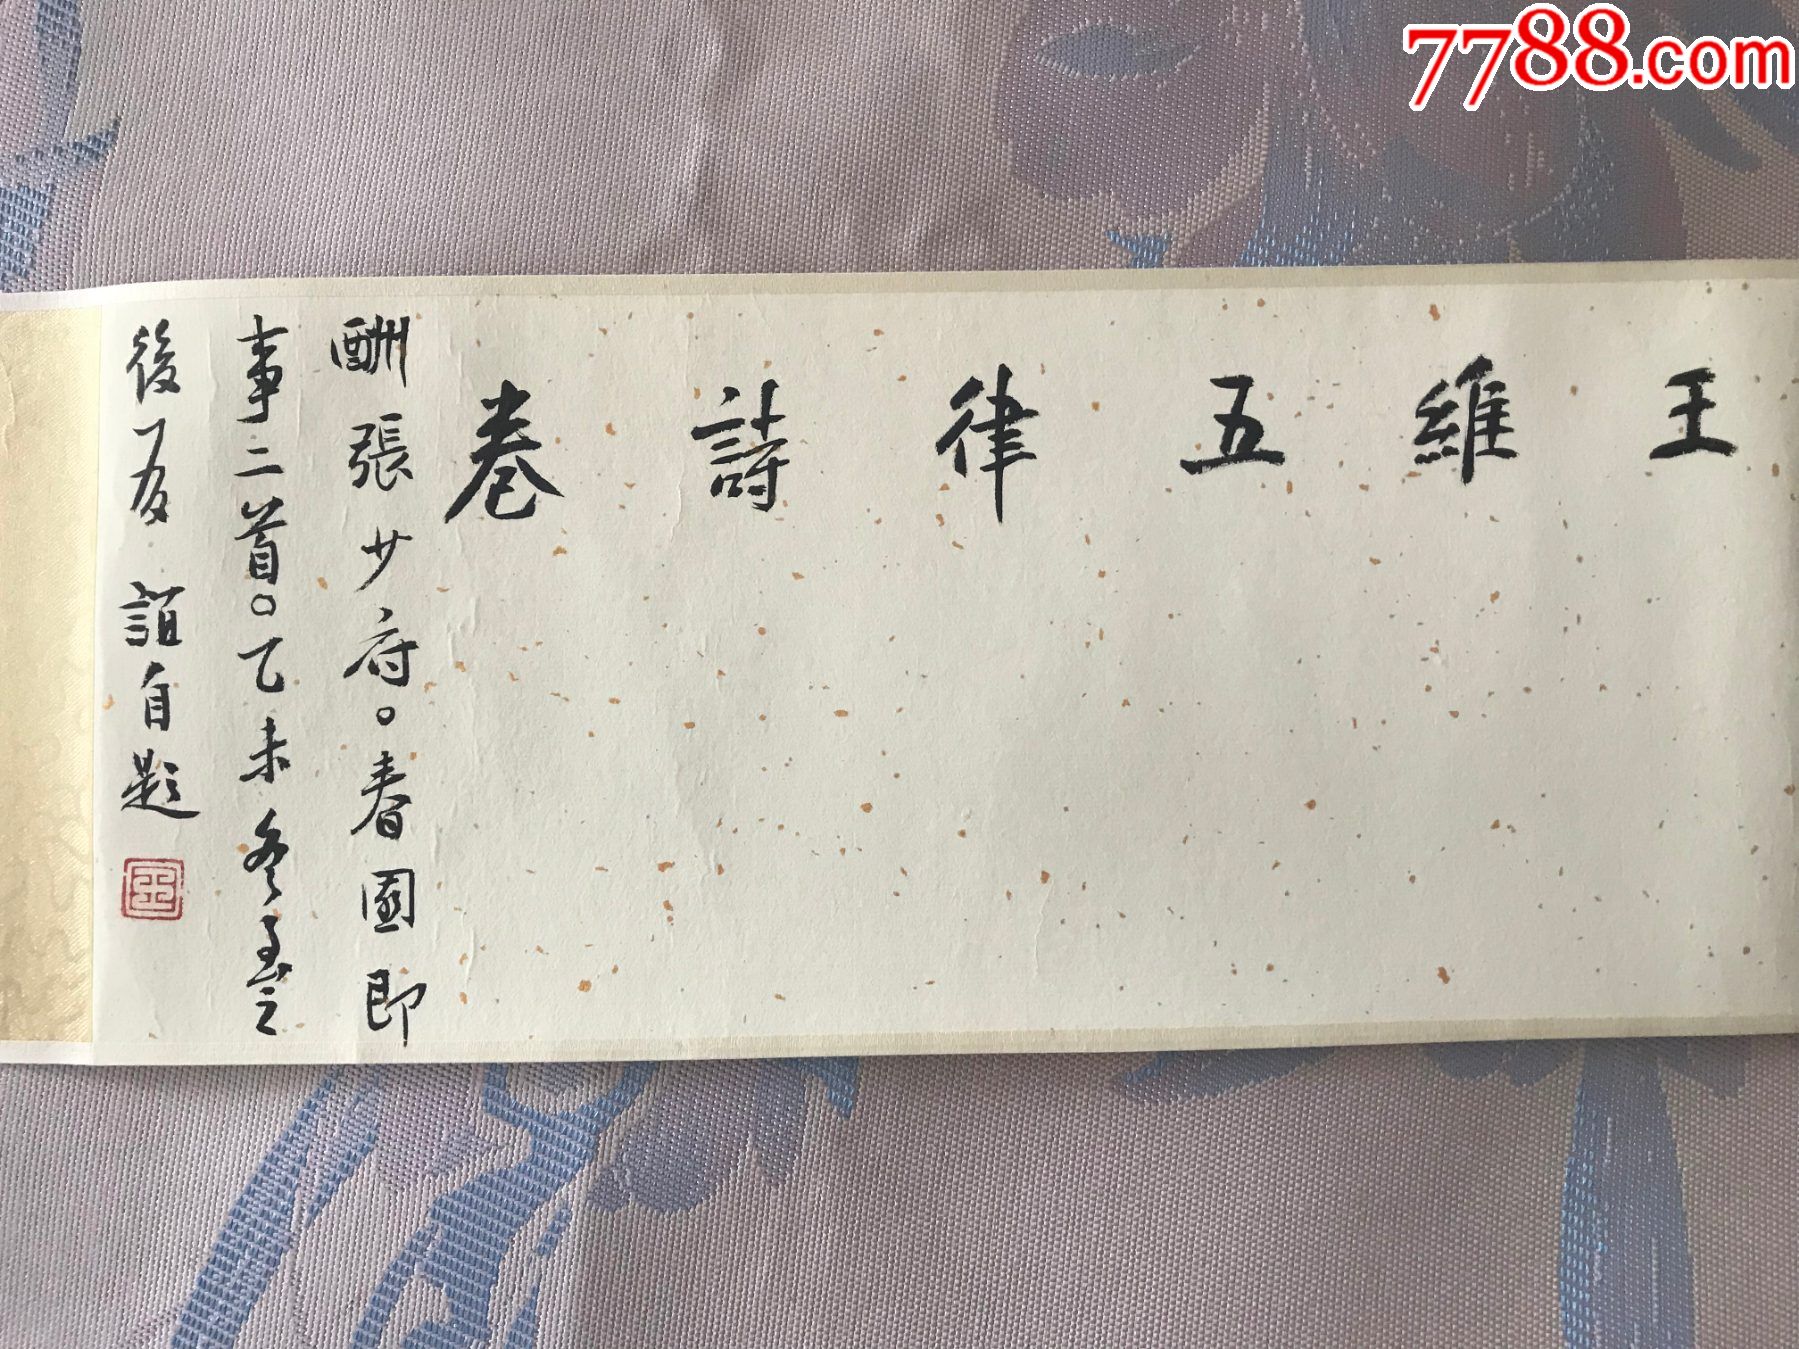 7788.com
王維五律詩卷
酬張少府。春園即
事二首。乙未冬至
後一夜 誼自題